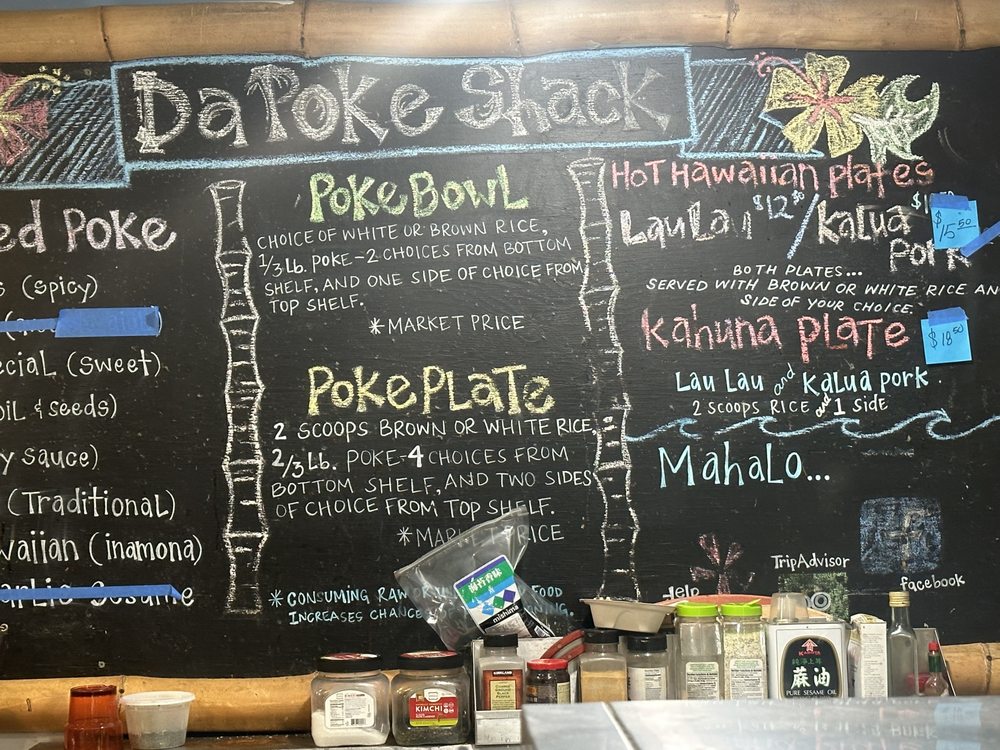 Da Poke Shack
ed Poke
s (spicy)
ecial (sweet)
oil & seeds)
y sauce)
(Traditional)
waiian (inamona)
arlic Sesame
Poke Bowl
CHOICE OF WHITE OR BROWN RICE,
1/3 Lb. POKE - 2 CHOICES FROM BOTTOM
SHELF, AND ONE SIDE OF CHOICE FROM
TOP SHELF.
*MARKET PRICE
Poke Plate
2 SCOOPS BROWN OR WHITE RICE,
2/3 Lb. POKE-4 CHOICES FROM
BOTTOM SHELF, AND TWO SIDES
OF CHOICE FROM TOP SHELF.
*MARKET PRICE
*CONSUMING RAW FOOD
INCREASES
HOT Hawaiian plates
Lau Lau $12.50 / Kalua
Pork
$15.50
BOTH PLATES...
SERVED WITH BROWN OR WHITE RICE AN
SIDE OF YOUR CHOICE.
Kahuna Plate
$18.50
Lau Lau and Kalua pork
2 SCOOPS RICE and 1 SIDE
Mahalo...
TripAdvisor
facebook
mishima
KIMCHI
KIRKLAND
麻油
PURE SESAME OIL